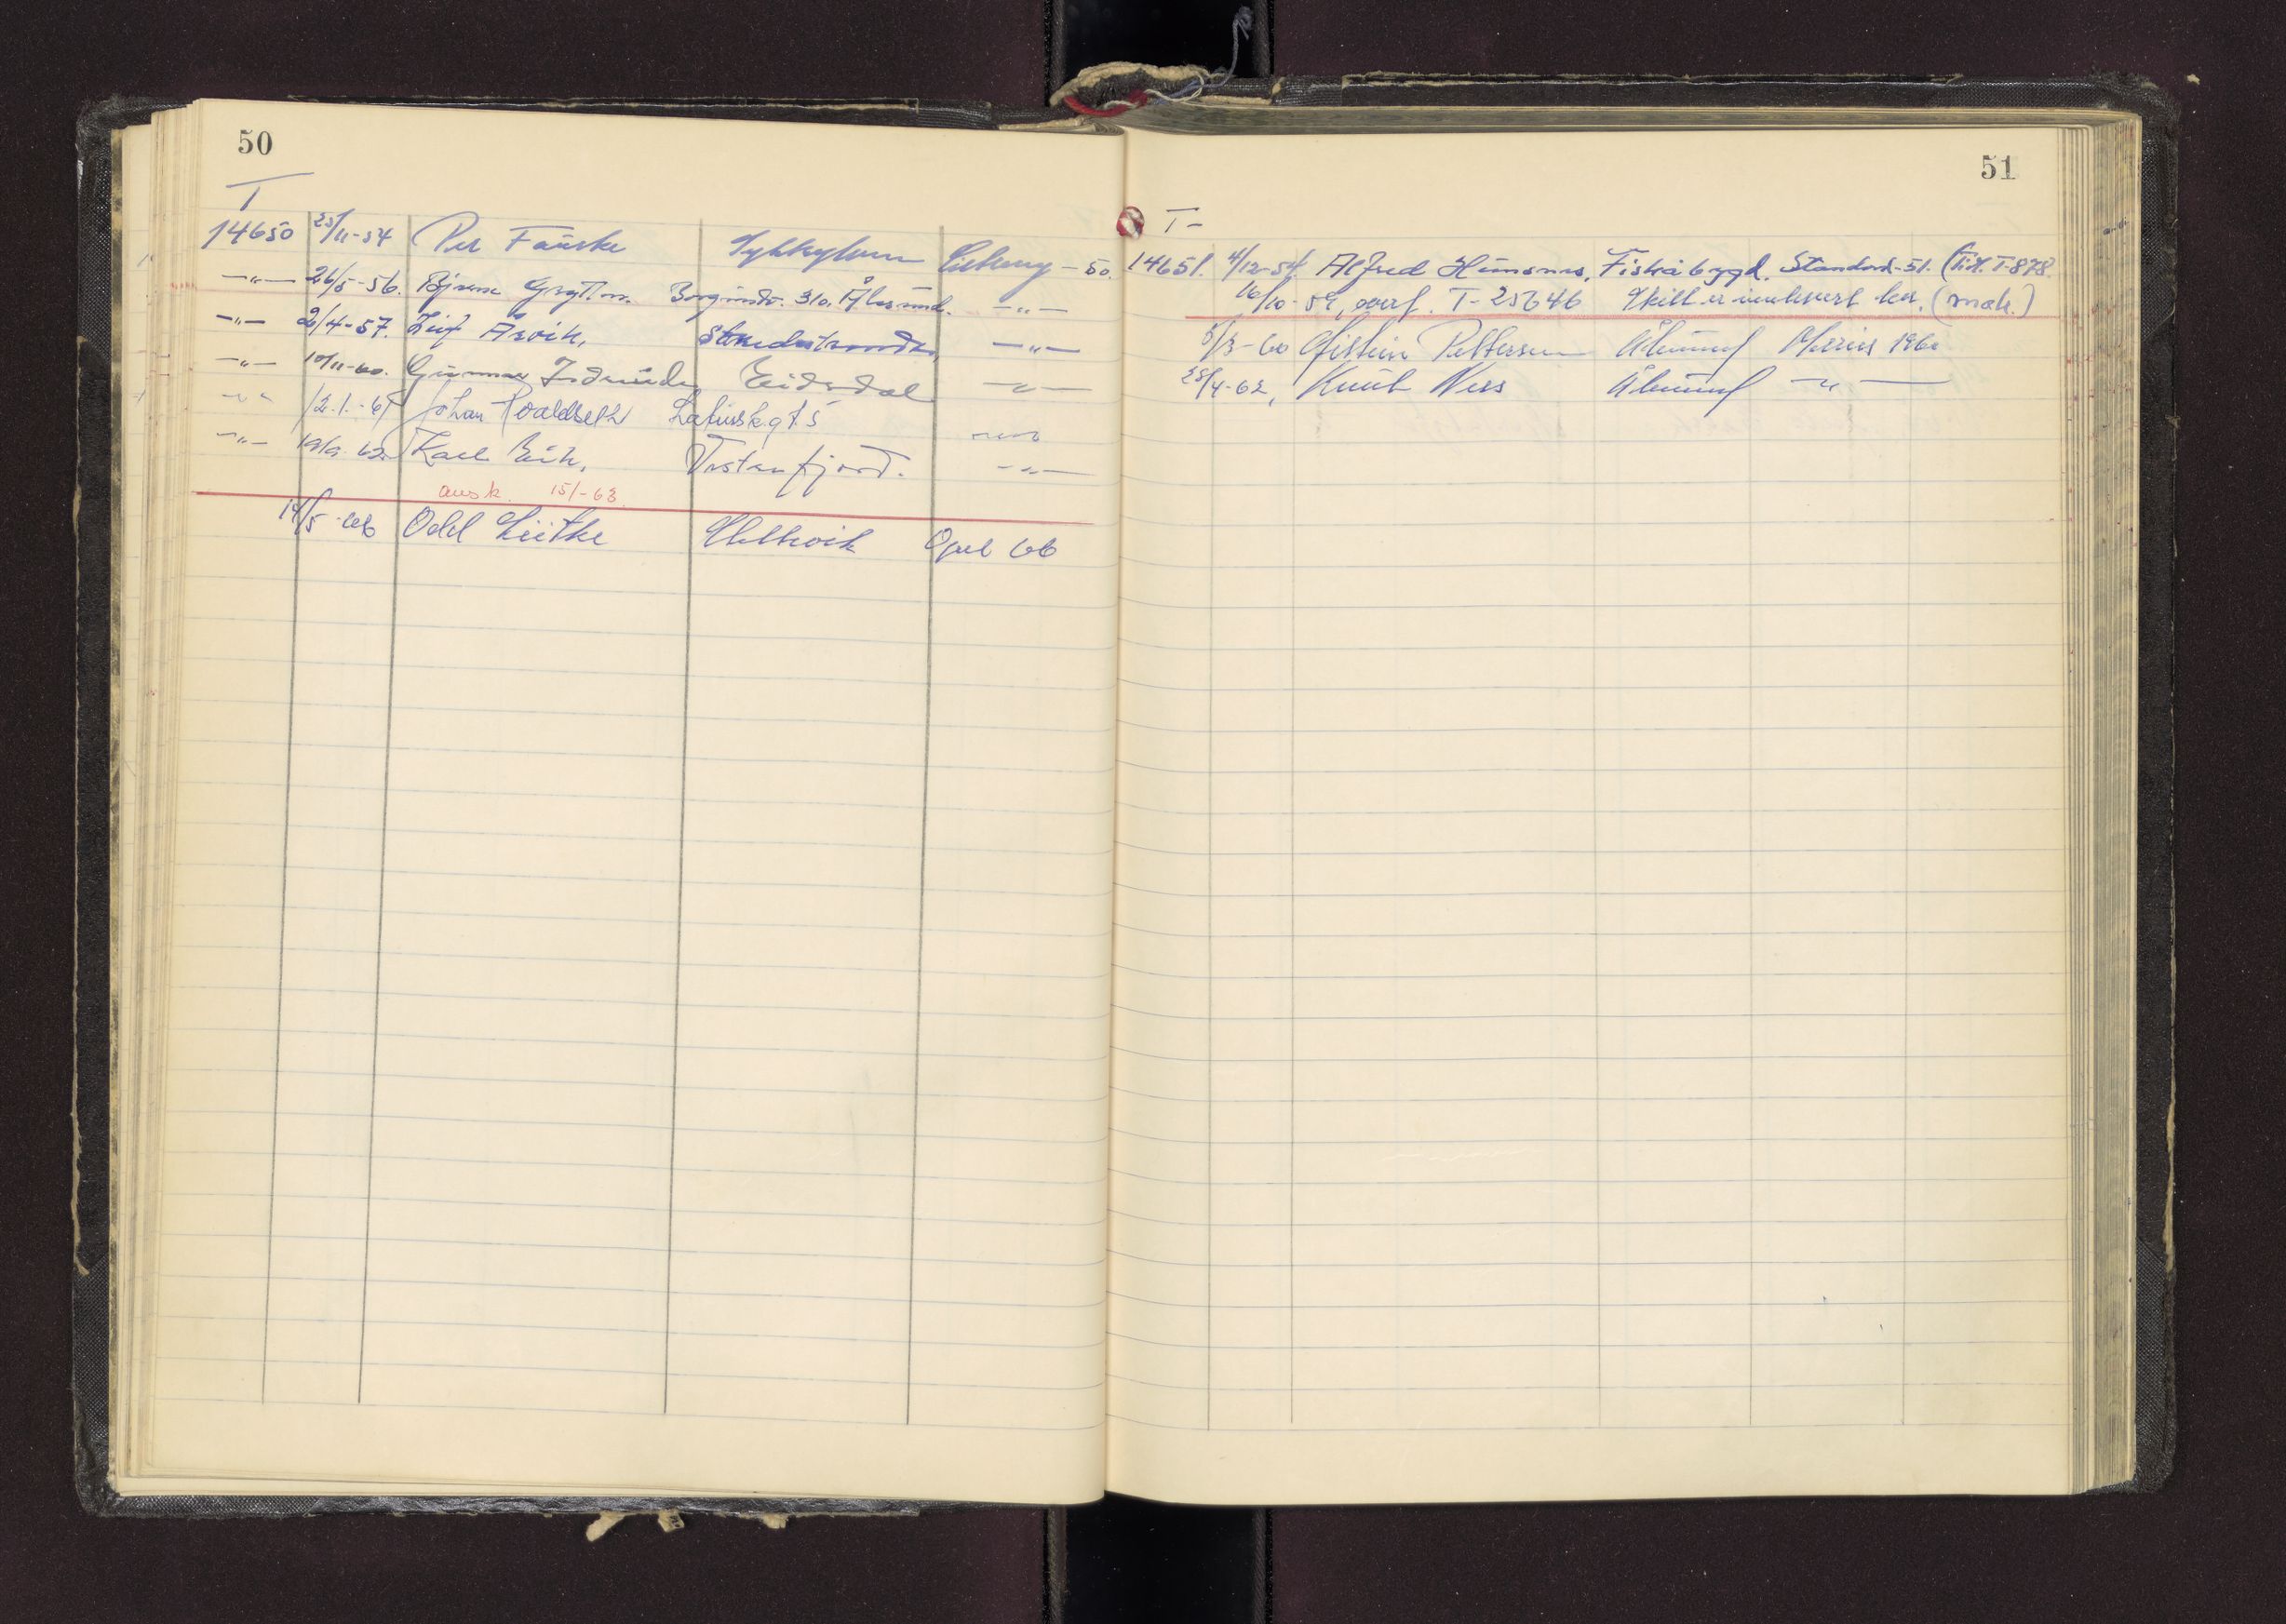 50
T
14650 25/11-54 Per Fauske Sykkylven Citroeng - 50.
-"- 26/5-56. Bjarne Grytten. Borgundv. 310. Ålesund. -"-
-"- 2/4-57. Leif Arvik, Stordastranda, -"-
-"- 10/11-60. Gunnar Indreeide Eidsdal -"-
-"- 12.1.-61 Johan Roaldseth Latinskgt. 5 -"-
-"- 19/9. 62. Karl Eik, Vestenfjord. -"-
avsk. 15/-63
14/5-66 Odd Lütke Helhvik Opel 66
51
T-
14651. 4/12-54. Alfred Humsnes, Fiskåbygd. Standard-51. (Tidl. T-878
16/10-59, overf. T-25646 Skilt er innlevert her. (mak.)
5/3-60 Øistein Pettersen Ålesund Morris 1960
25/4-62, Knut Ness Ålesund -"-